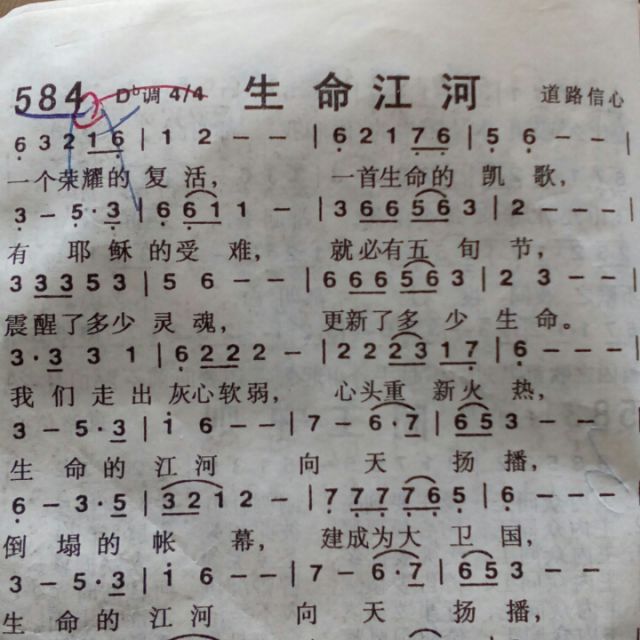 584 D♭调 4/4 生命江河 道路信心
6 3 2 1 6 | 1 2 – – | 6 2 1 7 6 | 5 6 – – |
一个荣耀的复活， 一首生命的凯歌，
3 – 5 · 3 | 6 6 1 1 – | 3 6 6 5 6 3 | 2 – – – |
有耶稣的受难， 就必有五旬节，
3 3 3 5 3 | 5 6 – – | 6 6 6 5 6 3 | 2 3 – – |
震醒了多少灵魂， 更新了多少生命。
3 · 3 3 1 | 6 2 2 2 – | 2 2 2 3 1 7 | 6 – – – |
我们走出灰心软弱， 心头重新火热，
3 – 5 · 3 | i 6 – – | 7 – 6 · 7 | 6 5 3 – –
生命的江河向天扬播，
6 – 3 · 5 | 3 2 1 2 – | 7 7 7 7 6 5 | 6 – – –
倒塌的帐幕， 建成为大卫国，
3 – 5 · 3 | i 6 – – | 7 – 6 · 7 | 6 5 3 – –
生命的江河向天扬播，